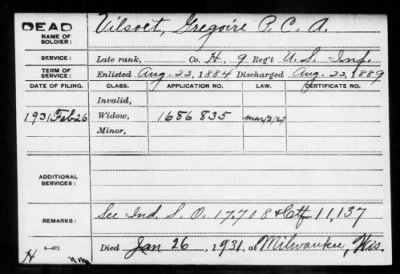 DEAD
NAME OF SOLDIER: Vilsoet, Gregoire P. C. A.
SERVICE: Late rank, Co. H. 9 Reg't U. S. Inf.
TERM OF SERVICE: Enlisted Aug. 22, 1884 Discharged Aug. 22, 1889
DATE OF FILING. CLASS. APPLICATION NO. LAW. CERTIFICATE NO.
Invalid,
1931 Feb 26 Widow, 1686 835
Minor,
ADDITIONAL SERVICES:
REMARKS: See Ind. S. O. 17,718 & Ctf 11,137
Died Jan 26, 1931, at Milwaukee, Wis.
H